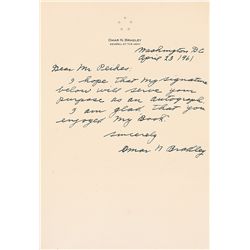 OMAR N. BRADLEY
GENERAL OF THE ARMY
Washington DC
April 23 1961
Dear Mr
I hope that my signature
below will serve your
purpose as an autograph.
I am glad that you
enjoyed my Book.
Sincerely
Omar N Bradley